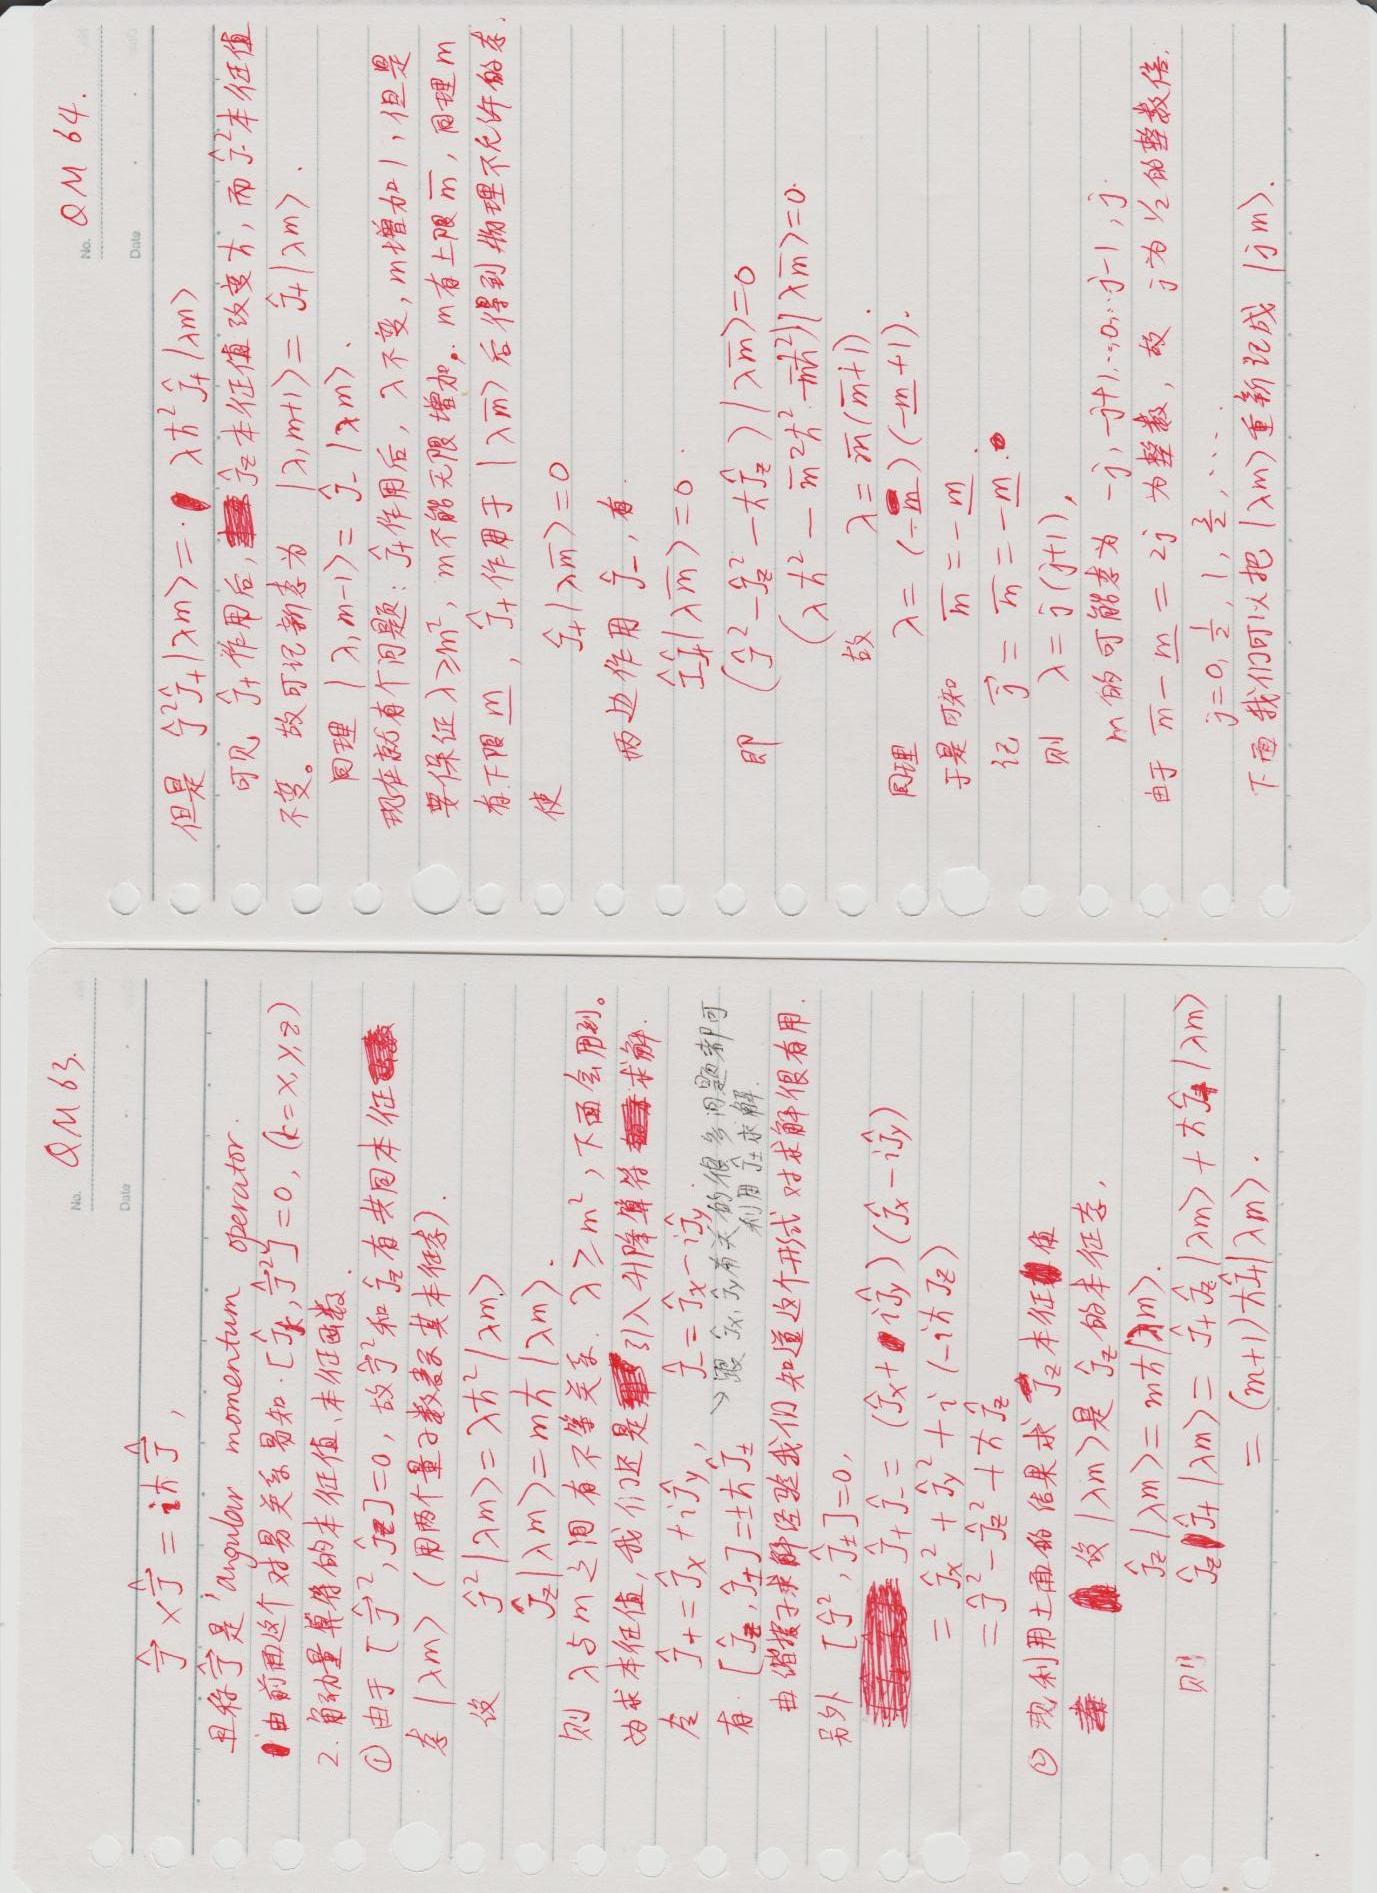 No. QM 63.
Date
$\hat{\vec{J}} \times \hat{\vec{J}} = i\hbar \hat{\vec{J}}$,
且称 $\hat{\vec{J}}$ 是 angular momentum operator.
由前面这个对易关系易知. $[\hat{J}_k, \hat{\vec{J}}^2]=0$, (k=x,y,z)
2. 角动量算符的本征值、本征函数.
① 由于 $[\hat{\vec{J}}^2, \hat{J}_z]=0$, 故 $\hat{J}^2$ 和 $\hat{J}_z$ 有共同本征
态 $|\lambda m\rangle$ (用两个量子数表示其本征态).
设 $\hat{J}^2|\lambda m\rangle = \lambda\hbar^2|\lambda m\rangle$
$\hat{J}_z|\lambda m\rangle = m\hbar|\lambda m\rangle$.
则 λ与m之间有不等关系. $\lambda \geq m^2$, 下面会用到。
为求本征值, 我们还是引入升降算符求解.
令 $\hat{J}_+ = \hat{J}_x + i\hat{J}_y$, $\hat{J}_- = \hat{J}_x - i\hat{J}_y$.
有. $[\hat{J}_z, \hat{J}_\pm] = \pm\hbar\hat{J}_\pm$
↘ 跟 $\hat{J}_x, \hat{J}_y$ 有关的很多问题都可
利用 $\hat{J}_\pm$ 求解.
由谐振子求解经验我们知道这个形式对求解很有用.
另外 $[\hat{J}^2, \hat{J}_\pm]=0$,
$\hat{J}_+\hat{J}_- = (\hat{J}_x + i\hat{J}_y)(\hat{J}_x - i\hat{J}_y)$
$= \hat{J}_x^2 + \hat{J}_y^2 + i(-i\hbar J_z)$
$= \hat{J}^2 - \hat{J}_z^2 + \hbar\hat{J}_z$
② 现利用上面的结果求 $\hat{J}_z$ 本征值
设 $|\lambda m\rangle$ 是 $\hat{J}_z$ 的本征态,
$\hat{J}_z|\lambda m\rangle = m\hbar|\lambda m\rangle$.
则 $\hat{J}_z\hat{J}_+|\lambda m\rangle = \hat{J}_+\hat{J}_z|\lambda m\rangle + \hbar\hat{J}_+|\lambda m\rangle$
$= (m+1)\hbar\hat{J}_+|\lambda m\rangle$.
No. QM 64.
Date
但是 $\hat{J}^2\hat{J}_+|\lambda m\rangle = \lambda\hbar^2\hat{J}_+|\lambda m\rangle$
可见 $\hat{J}_+$ 作用后, $\hat{J}_z$ 本征值改变 $\hbar$, 而 $\hat{J}^2$ 本征值
不变。故可记新态为 $|\lambda, m+1\rangle = \hat{J}_+|\lambda m\rangle$.
同理 $|\lambda, m-1\rangle = \hat{J}_-|\lambda m\rangle$.
现在就有个问题: $\hat{J}_+$ 作用后, λ不变, m增加1, 但是
要保证 $\lambda \geq m^2$, m不能无限增加. m有上限 $\overline{m}$, 同理m
有下限 $\underline{m}$, $\hat{J}_+$ 作用于 $|\lambda\overline{m}\rangle$ 后得到物理不允许的态.
使 $\hat{J}_+|\lambda\overline{m}\rangle = 0$
两边作用 $\hat{J}_-$, 有.
$\hat{J}_-\hat{J}_+|\lambda\overline{m}\rangle = 0$.
即 $(\hat{J}^2 - \hat{J}_z^2 - \hbar\hat{J}_z)|\lambda\overline{m}\rangle = 0$
$(\lambda\hbar^2 - \overline{m}^2\hbar^2 - \overline{m}\hbar^2)|\lambda\overline{m}\rangle = 0$.
故 $\lambda = \overline{m}(\overline{m}+1)$.
同理 $\lambda = (-\underline{m})(-\underline{m}+1)$.
于是可知 $\overline{m} = -\underline{m}$.
记 $\vec{j} = \overline{m} = -\underline{m}$.
则 $\lambda = j(j+1)$,
m的可能态为 -j, -j+1, …, 0, … j-1, j.
由于 $\overline{m} - \underline{m} = 2j$ 为整数, 故 j为1/2的整数倍.
$j = 0, \frac{1}{2}, 1, \frac{3}{2}, \cdots$.
下面我们可以把 $|\lambda m\rangle$ 重新记成 $|jm\rangle$.